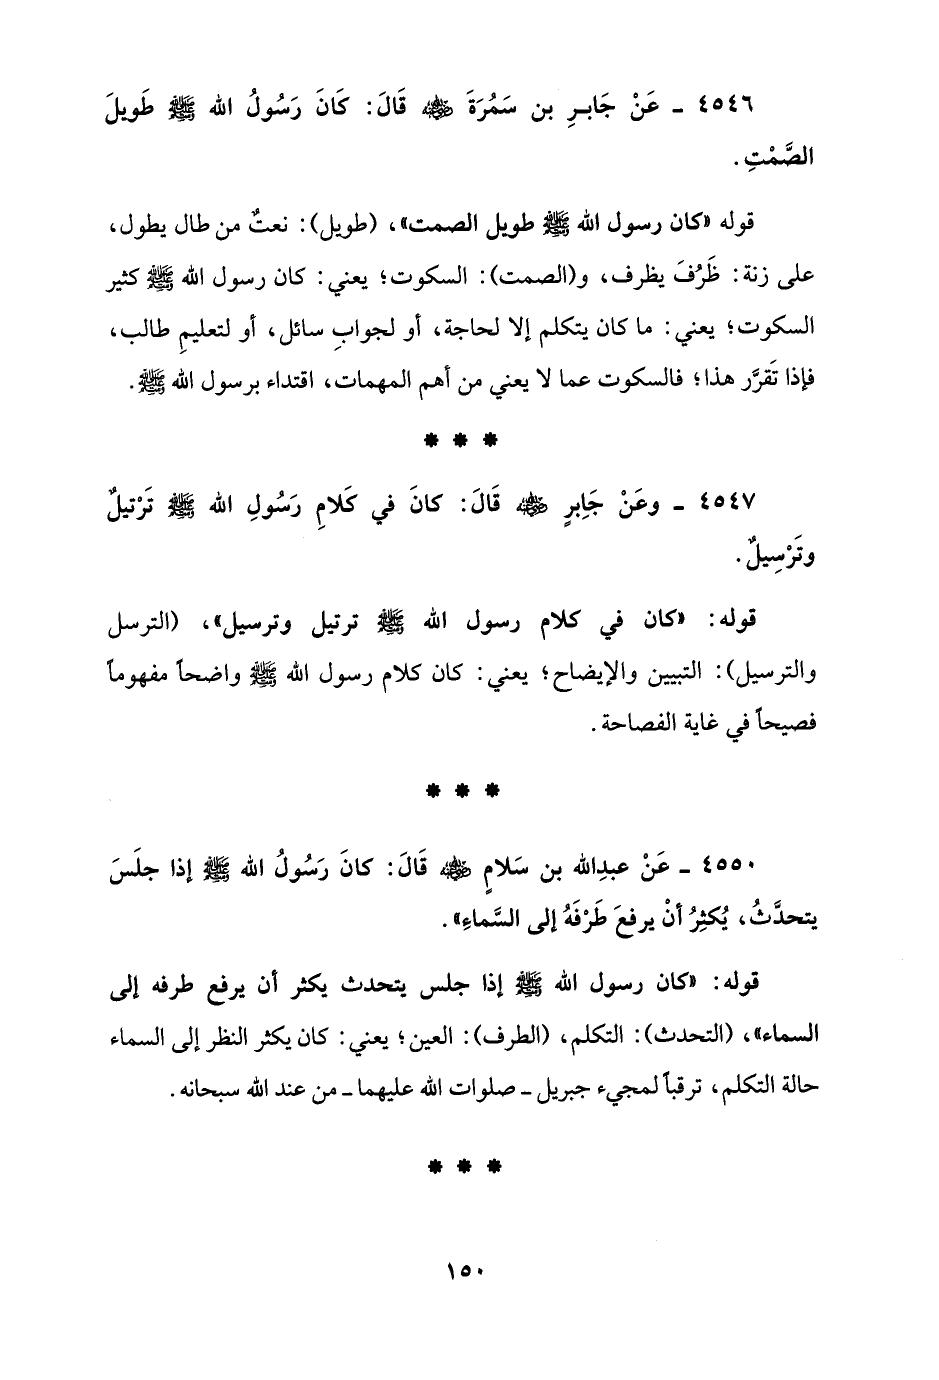 ٤٥٤٦ ـ عَنْ جَابـرِ بن سَمُرَةَ ﵁ قَالَ: كَانَ رَسُولُ الله ﷺ طَويلَ
الصَّمْتِ.
قوله «كان رسول الله ﷺ طويل الصمت»، (طويل): نعتٌ من طال يطول،
على زنة: ظَرُفَ يظرف، و(الصمت): السكوت؛ يعني: كان رسول الله ﷺ كثير
السكوت؛ يعني: ما كان يتكلم إلا لحاجة، أو لجوابِ سائل، أو لتعليمِ طالب،
فإذا تَقرَّر هذا؛ فالسكوت عما لا يعني من أهم المهمات، اقتداء برسول الله ﷺ.
* * *
٤٥٤٧ ـ وعَنْ جَابِرٍ ﵁ قَالَ: كانَ في كَلامِ رَسُولِ الله ﷺ تَرْتيلٌ
وتَرْسِيلٌ.
قوله: «كان في كلام رسول الله ﷺ ترتيل وترسيل»، (الترسل
والترسيل): التبيين والإيضاح؛ يعني: كان كلام رسول الله ﷺ واضحاً مفهوماً
فصيحاً في غاية الفصاحة.
* * *
٤٥٥٠ ـ عَنْ عبدِالله بن سَلامٍ ﵁ قَالَ: كانَ رَسُولُ الله ﷺ إذا جلَسَ
يتحدَّثُ، يُكثِرُ أنْ يرفعَ طَرْفَهُ إلى السَّماءِ».
قوله: «كان رسول الله ﷺ إذا جلس يتحدث يكثر أن يرفع طرفه إلى
السماء»، (التحدث): التكلم، (الطرف): العين؛ يعني: كان يكثر النظر إلى السماء
حالة التكلم، ترقباً لمجيء جبريل ـ صلوات الله عليهما ـ من عند الله سبحانه.
* * *
١٥٠